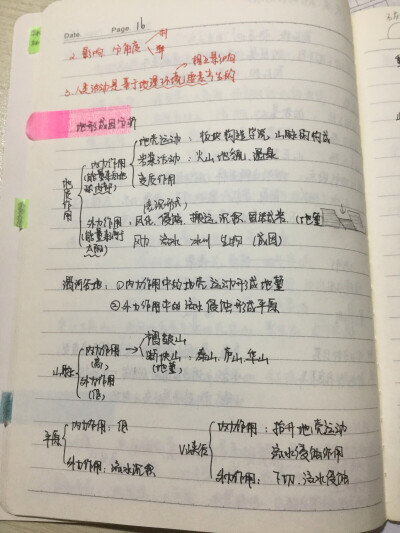 Date
Page 16
2. 影响 分角度 时
3. 人类活动是基于地理环境
相互影响
地形成因分析
地质作用
内力作用
地壳运动：板块构造学说，山脉的构成
岩浆活动：火山地貌，温泉
变质作用
(表现形式)
外力作用：风化、侵蚀、搬运、沉积、固结成岩 (地堑)
(能量来自于太阳)
风力 流水 冰川 生物 (成因)
渭河谷地：①内力作用中的地壳运动形成地堑
②外力作用中的流水侵蚀形成平原
山脉
内力作用 (高)
褶皱山
断块山：泰山、庐山、华山
(地垒)
外力作用 (低)
平原
内力作用：低
外力作用：流水沉积
V型峡谷
内力作用：抬升地壳运动
流水侵蚀作用
外力作用：下切、流水侵蚀